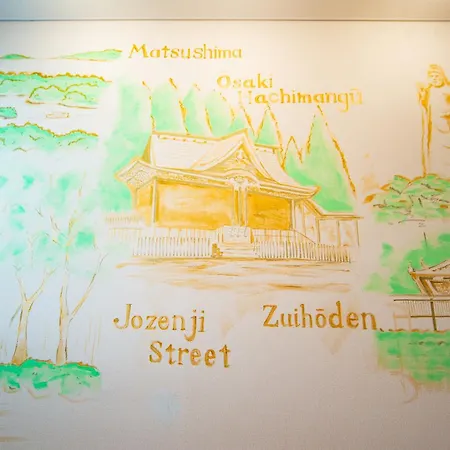 Matsushima
Osaki
Hachimangū
Jozenji
Street
Zuihōden